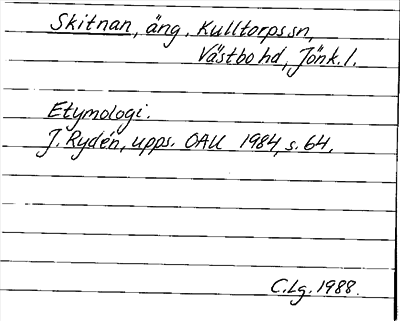 Skitnan, äng, Kulltorps sn,
Västbo hd, Jönk. l.
Etymologi.
J. Rydén, upps. OAU 1984, s. 64.
C.Lg. 1988.